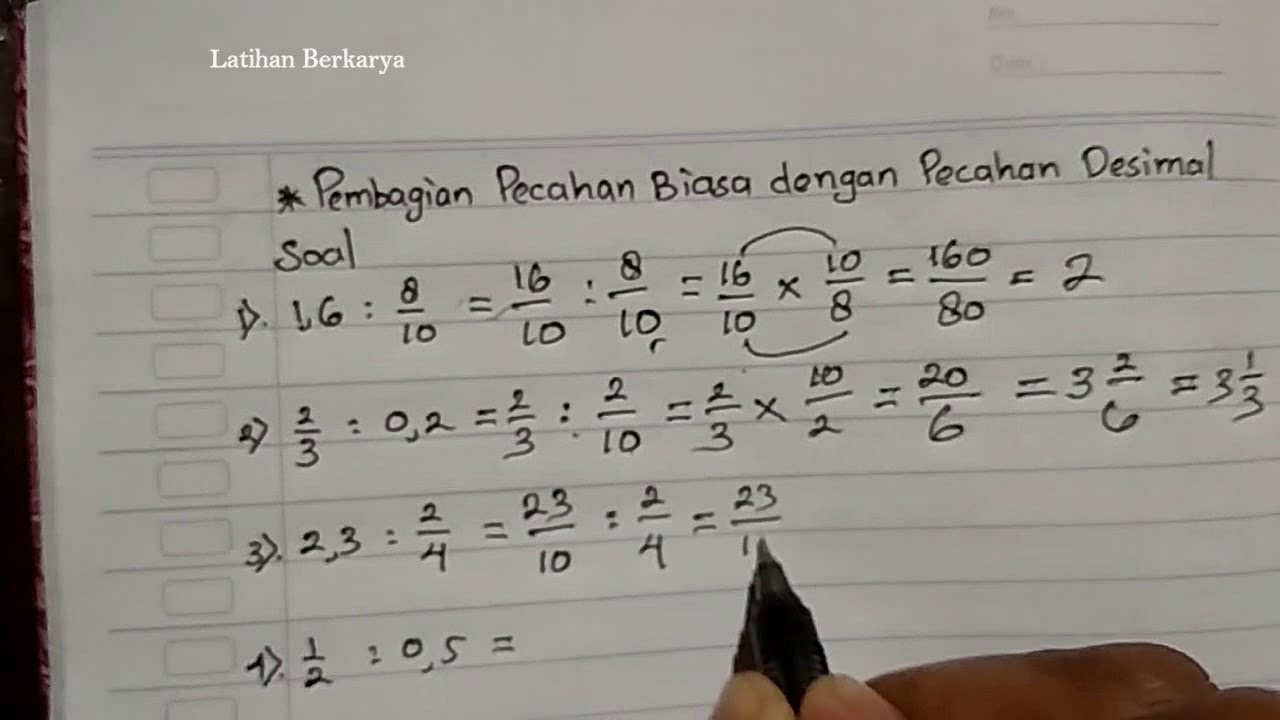 Latihan Berkarya
* Pembagian Pecahan Biasa dengan Pecahan Desimal
Soal
1). 1,6 : 8/10 = 16/10 : 8/10 = 16/10 × 10/8 = 160/80 = 2
2) 2/3 : 0,2 = 2/3 : 2/10 = 2/3 × 10/2 = 20/6 = 3 2/6 = 3 1/3
3). 2,3 : 2/4 = 23/10 : 2/4 = 23/1
4). 1/2 : 0,5 =